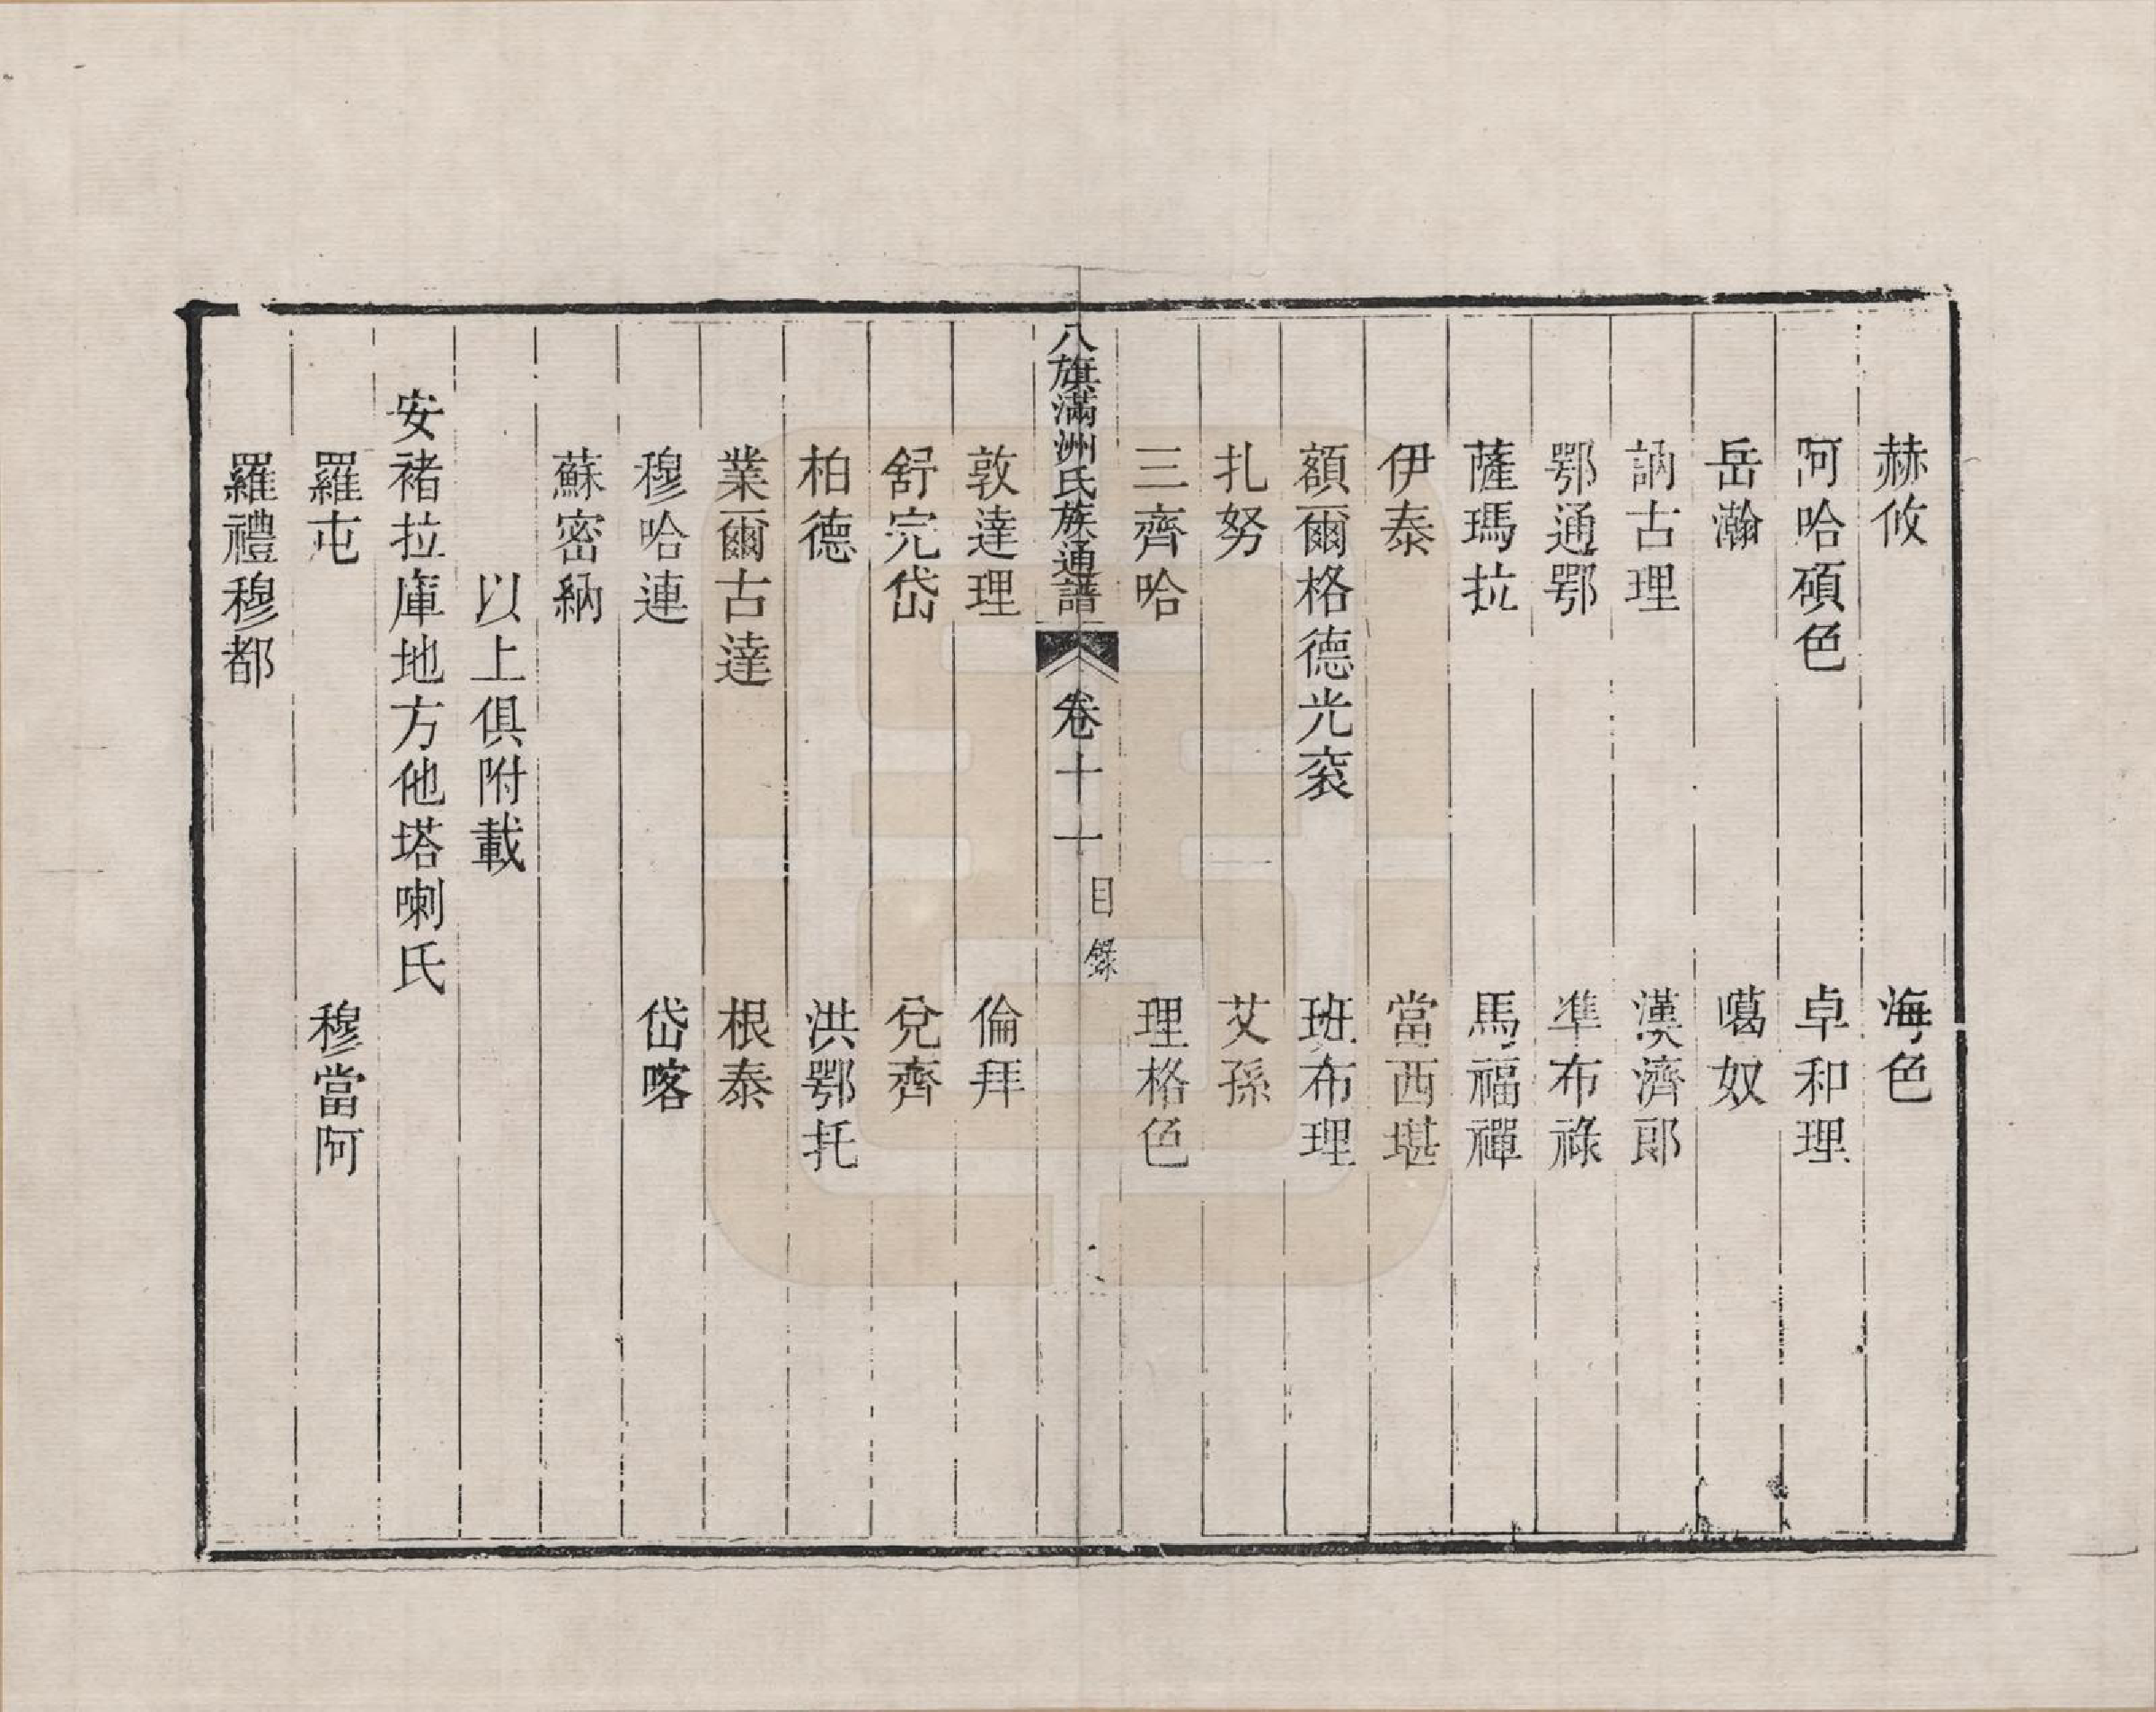 赫攸　海色
阿哈碩色　卓和理
岳瀚　噶奴
訥古理　漢濟郎
鄂通鄂　準布祿
薩瑪拉　馬福禪
伊泰　當西堪
額爾格德光袞　班布理
扎努　艾孫
三齊哈　理格色
八旗滿洲氏族通譜　卷十十　目錄
敦達理　倫拜
舒完岱　兌齊
柏德　洪鄂托
業爾古達　根泰
穆哈連　岱喀
蘇密納
以上俱附載
安褚拉庫地方他塔喇氏
羅屯　穆當阿
羅禮穆都